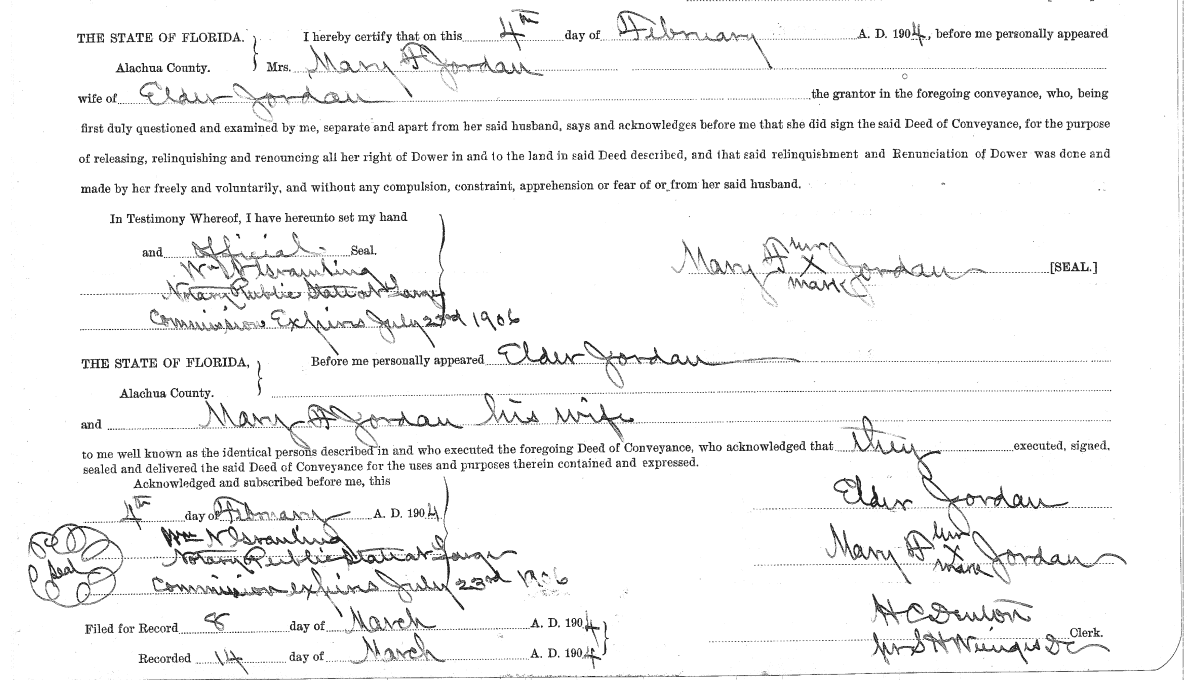 THE STATE OF FLORIDA. } I hereby certify that on this 4th day of February A. D. 1904, before me personally appeared
Alachua County. } Mrs. Mary F Jordan
wife of Elder Jordan the grantor in the foregoing conveyance, who, being
first duly questioned and examined by me, separate and apart from her said husband, says and acknowledges before me that she did sign the said Deed of Conveyance, for the purpose
of releasing, relinquishing and renouncing all her right of Dower in and to the land in said Deed described, and that said relinquishment and Renunciation of Dower was done and
made by her freely and voluntarily, and without any compulsion, constraint, apprehension or fear of or from her said husband.
In Testimony Whereof, I have hereunto set my hand
and official Seal.
Wm N
Notary Public State at Large
Commission Expires July 23rd 1906
her
Mary F X Jordan [SEAL.]
mark
THE STATE OF FLORIDA, } Before me personally appeared Elder Jordan
Alachua County. }
and Mary F Jordan his wife
to me well known as the identical persons described in and who executed the foregoing Deed of Conveyance, who acknowledged that they executed, signed,
sealed and delivered the said Deed of Conveyance for the uses and purposes therein contained and expressed.
Acknowledged and subscribed before me, this
4th day of February A. D. 1904
Wm N
Seal
Notary Public State at Large
Commission expires July 23rd 1906
Elder Jordan
her
Mary F X Jordan
mark
Filed for Record 8 day of March A. D. 1904
H C Denton Clerk.
Recorded 14 day of March A. D. 1904
per S H DC